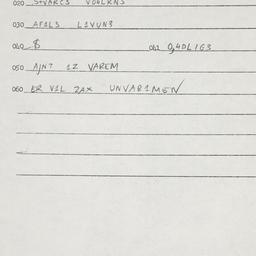 020 STVARCS VOULKNS
030 AFALS LIVUN3
040 $ 041 0,4DL/G3
050 AJNT IZ VAREM
060 ER VIL ZAX UNVARIMEN